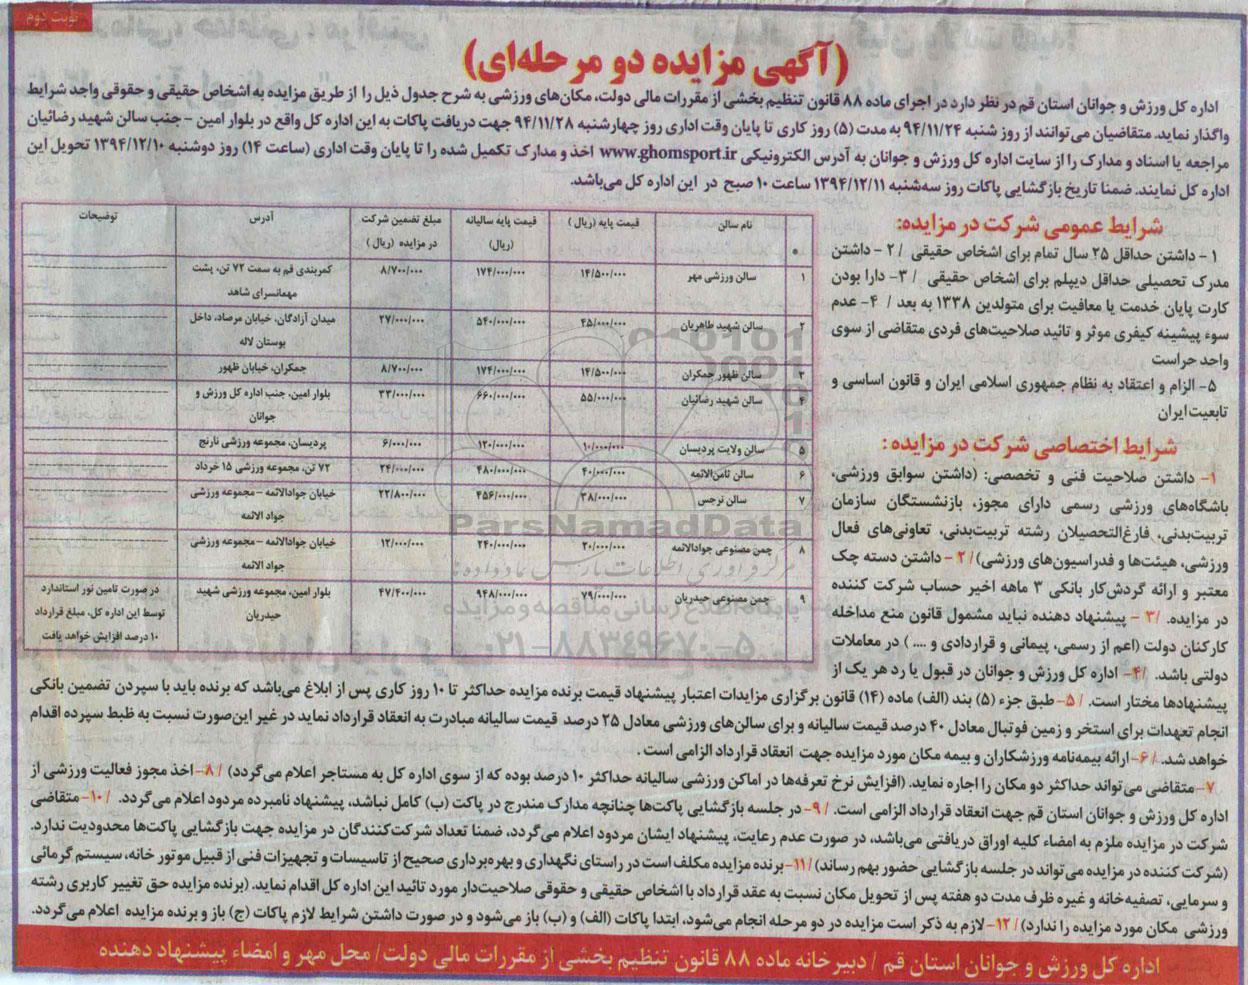 نوبت دوم
(آگهی مزایده دو مرحله‌ای)
اداره کل ورزش و جوانان استان قم در نظر دارد در اجرای ماده ۸۸ قانون تنظیم بخشی از مقررات مالی دولت، مکان‌های ورزشی به شرح جدول ذیل را از طریق مزایده به اشخاص حقیقی و حقوقی واجد شرایط
واگذار نماید. متقاضیان می‌توانند از روز شنبه ۹۴/۱۱/۲۴ به مدت (۵) روز کاری تا پایان وقت اداری روز چهارشنبه ۹۴/۱۱/۲۸ جهت دریافت پاکات به این اداره کل واقع در بلوار امین - جنب سالن شهید رضائیان
مراجعه یا اسناد و مدارک را از سایت اداره کل ورزش و جوانان به آدرس الکترونیکی www.ghomsport.ir اخذ و مدارک تکمیل شده را تا پایان وقت اداری (ساعت ۱۴) روز دوشنبه ۱۳۹۴/۱۲/۱۰ تحویل این
اداره کل نمایند. ضمنا تاریخ بازگشایی پاکات روز سه‌شنبه ۱۳۹۴/۱۲/۱۱ ساعت ۱۰ صبح در این اداره کل می‌باشد.
شرایط عمومی شرکت در مزایده:
۱- داشتن حداقل ۲۵ سال تمام برای اشخاص حقیقی / ۲- داشتن
مدرک تحصیلی حداقل دیپلم برای اشخاص حقیقی / ۳- دارا بودن
کارت پایان خدمت یا معافیت برای متولدین ۱۳۳۸ به بعد / ۴- عدم
سوء پیشینه کیفری موثر و تائید صلاحیت‌های فردی متقاضی از سوی
واحد حراست
۵- الزام و اعتقاد به نظام جمهوری اسلامی ایران و قانون اساسی و
تابعیت ایران
شرایط اختصاصی شرکت در مزایده :
۱- داشتن صلاحیت فنی و تخصصی: (داشتن سوابق ورزشی،
باشگاه‌های ورزشی رسمی دارای مجوز، بازنشستگان سازمان
تربیت‌بدنی، فارغ‌التحصیلان رشته تربیت‌بدنی، تعاونی‌های فعال
ورزشی، هیئت‌ها و فدراسیون‌های ورزشی) / ۲- داشتن دسته چک
معتبر و ارائه گردش‌کار بانکی ۳ ماهه اخیر حساب شرکت کننده
در مزایده. / ۳- پیشنهاد دهنده نباید مشمول قانون منع مداخله
کارکنان دولت (اعم از رسمی، پیمانی و قراردادی و .... ) در معاملات
دولتی باشد. / ۴- اداره کل ورزش و جوانان در قبول یا رد هر یک از
نام سالن قیمت پایه (ریال) قیمت پایه سالیانه (ریال) مبلغ تضمین شرکت در مزایده (ریال) آدرس توضیحات
۱ سالن ورزشی مهر ۱۴/۵۰۰/۰۰۰ ۱۷۴/۰۰۰/۰۰۰ ۸/۷۰۰/۰۰۰ کمربندی قم به سمت ۷۲ تن، پشت مهمانسرای شاهد
۲ سالن شهید طاهریان ۴۵/۰۰۰/۰۰۰ ۵۴۰/۰۰۰/۰۰۰ ۲۷/۰۰۰/۰۰۰ میدان آزادگان، خیابان مرصاد، داخل بوستان لاله
۳ سالن ظهور جمکران ۱۴/۵۰۰/۰۰۰ ۱۷۴/۰۰۰/۰۰۰ ۸/۷۰۰/۰۰۰ جمکران، خیابان ظهور
۴ سالن شهید رضائیان ۵۵/۰۰۰/۰۰۰ ۶۶۰/۰۰۰/۰۰۰ ۳۳/۰۰۰/۰۰۰ بلوار امین، جنب اداره کل ورزش و جوانان
۵ سالن ولایت پردیسان ۱۰/۰۰۰/۰۰۰ ۱۲۰/۰۰۰/۰۰۰ ۶/۰۰۰/۰۰۰ پردیسان، مجموعه ورزشی نارنج
۶ سالن ثامن‌الائمه ۴۰/۰۰۰/۰۰۰ ۴۸۰/۰۰۰/۰۰۰ ۲۴/۰۰۰/۰۰۰ ۷۲ تن، مجموعه ورزشی ۱۵ خرداد
۷ سالن نرجس ۳۸/۰۰۰/۰۰۰ ۴۵۶/۰۰۰/۰۰۰ ۲۲/۸۰۰/۰۰۰ خیابان جوادالائمه - مجموعه ورزشی جواد الائمه
۸ چمن مصنوعی جوادالائمه ۲۰/۰۰۰/۰۰۰ ۲۴۰/۰۰۰/۰۰۰ ۱۲/۰۰۰/۰۰۰ خیابان جوادالائمه - مجموعه ورزشی جواد الائمه
۹ چمن مصنوعی حیدریان ۷۹/۰۰۰/۰۰۰ ۹۴۸/۰۰۰/۰۰۰ ۴۷/۴۰۰/۰۰۰ بلوار امین، مجموعه ورزشی شهید حیدریان در صورت تامین نور استاندارد توسط این اداره کل، مبلغ قرارداد ۱۰ درصد افزایش خواهد یافت
ParsNamadData
مرکز فرآوری اطلاعات پارس نماد داده‌ها
پایگاه اطلاع رسانی مناقصه و مزایده
۰۲۱-۸۸۳۴۹۶۷۰-۵
پیشنهادها مختار است. / ۵- طبق جزء (۵) بند (الف) ماده (۱۴) قانون برگزاری مزایدات اعتبار پیشنهاد قیمت برنده مزایده حداکثر تا ۱۰ روز کاری پس از ابلاغ می‌باشد که برنده باید با سپردن تضمین بانکی
انجام تعهدات برای استخر و زمین فوتبال معادل ۴۰ درصد قیمت سالیانه و برای سالن‌های ورزشی معادل ۲۵ درصد قیمت سالیانه مبادرت به انعقاد قرارداد نماید در غیر این‌صورت نسبت به ظبط سپرده اقدام
خواهد شد. / ۶- ارائه بیمه‌نامه ورزشکاران و بیمه مکان مورد مزایده جهت انعقاد قرارداد الزامی است .
۷- متقاضی می‌تواند حداکثر دو مکان را اجاره نماید. (افزایش نرخ تعرفه‌ها در اماکن ورزشی سالیانه حداکثر ۱۰ درصد بوده که از سوی اداره کل به مستاجر اعلام می‌گردد) / ۸- اخذ مجوز فعالیت ورزشی از
اداره کل ورزش و جوانان استان قم جهت انعقاد قرارداد الزامی است. / ۹- در جلسه بازگشایی پاکت‌ها چنانچه مدارک مندرج در پاکت (ب) کامل نباشد، پیشنهاد نامبرده مردود اعلام می‌گردد. / ۱۰- متقاضی
شرکت در مزایده ملزم به امضاء کلیه اوراق دریافتی می‌باشد، در صورت عدم رعایت، پیشنهاد ایشان مردود اعلام می‌گردد، ضمنا تعداد شرکت‌کنندگان در مزایده جهت بازگشایی پاکت‌ها محدودیت ندارد.
(شرکت کننده در مزایده می‌تواند در جلسه بازگشایی حضور بهم رساند) / ۱۱- برنده مزایده مکلف است در راستای نگهداری و بهره‌برداری صحیح از تاسیسات و تجهیزات فنی از قبیل موتور خانه، سیستم گرمائی
و سرمایی، تصفیه‌خانه و غیره ظرف مدت دو هفته پس از تحویل مکان نسبت به عقد قرارداد با اشخاص حقیقی و حقوقی صلاحیت‌دار مورد تائید این اداره کل اقدام نماید. (برنده مزایده حق تغییر کاربری رشته
ورزشی مکان مورد مزایده را ندارد) / ۱۲- لازم به ذکر است مزایده در دو مرحله انجام می‌شود، ابتدا پاکات (الف) و (ب) باز می‌شود و در صورت داشتن شرایط لازم پاکات (ج) باز و برنده مزایده اعلام می‌گردد.
اداره کل ورزش و جوانان استان قم / دبیرخانه ماده ۸۸ قانون تنظیم بخشی از مقررات مالی دولت / محل مهر و امضاء پیشنهاد دهنده